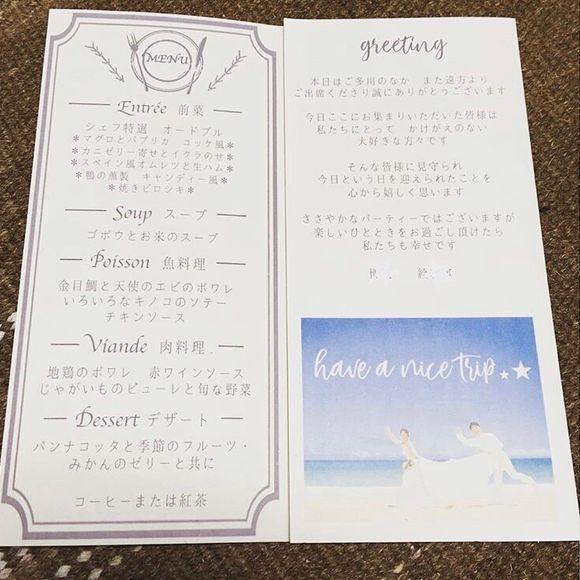 MENU
Entrée 前菜
シェフ特選 オードブル
＊マグロとパプリカ ユッケ風＊
＊カニゼリー寄せとイクラのせ＊
＊スペイン風オムレツと生ハム＊
＊鴨の燻製 キャンディー風＊
＊焼きピロシキ＊
Soup スープ
ゴボウとお米のスープ
Poisson 魚料理
金目鯛と天使のエビのポワレ
いろいろなキノコのソテー
チキンソース
Viande 肉料理.
地鶏のポワレ 赤ワインソース
じゃがいものピューレと旬な野菜
Dessert デザート
パンナコッタと季節のフルーツ・
みかんのゼリーと共に
コーヒーまたは紅茶
greeting
本日はご多用のなか また遠方より
ご出席くださり誠にありがとうございます
今日ここにお集まりいただいた皆様は
私たちにとって かけがえのない
大好きな方々です
そんな皆様に見守られ
今日という日を迎えられたことを
心から嬉しく思います
ささやかなパーティーではございますが
楽しいひとときをお過ごし頂けたら
私たちも幸せです
have a nice trip.